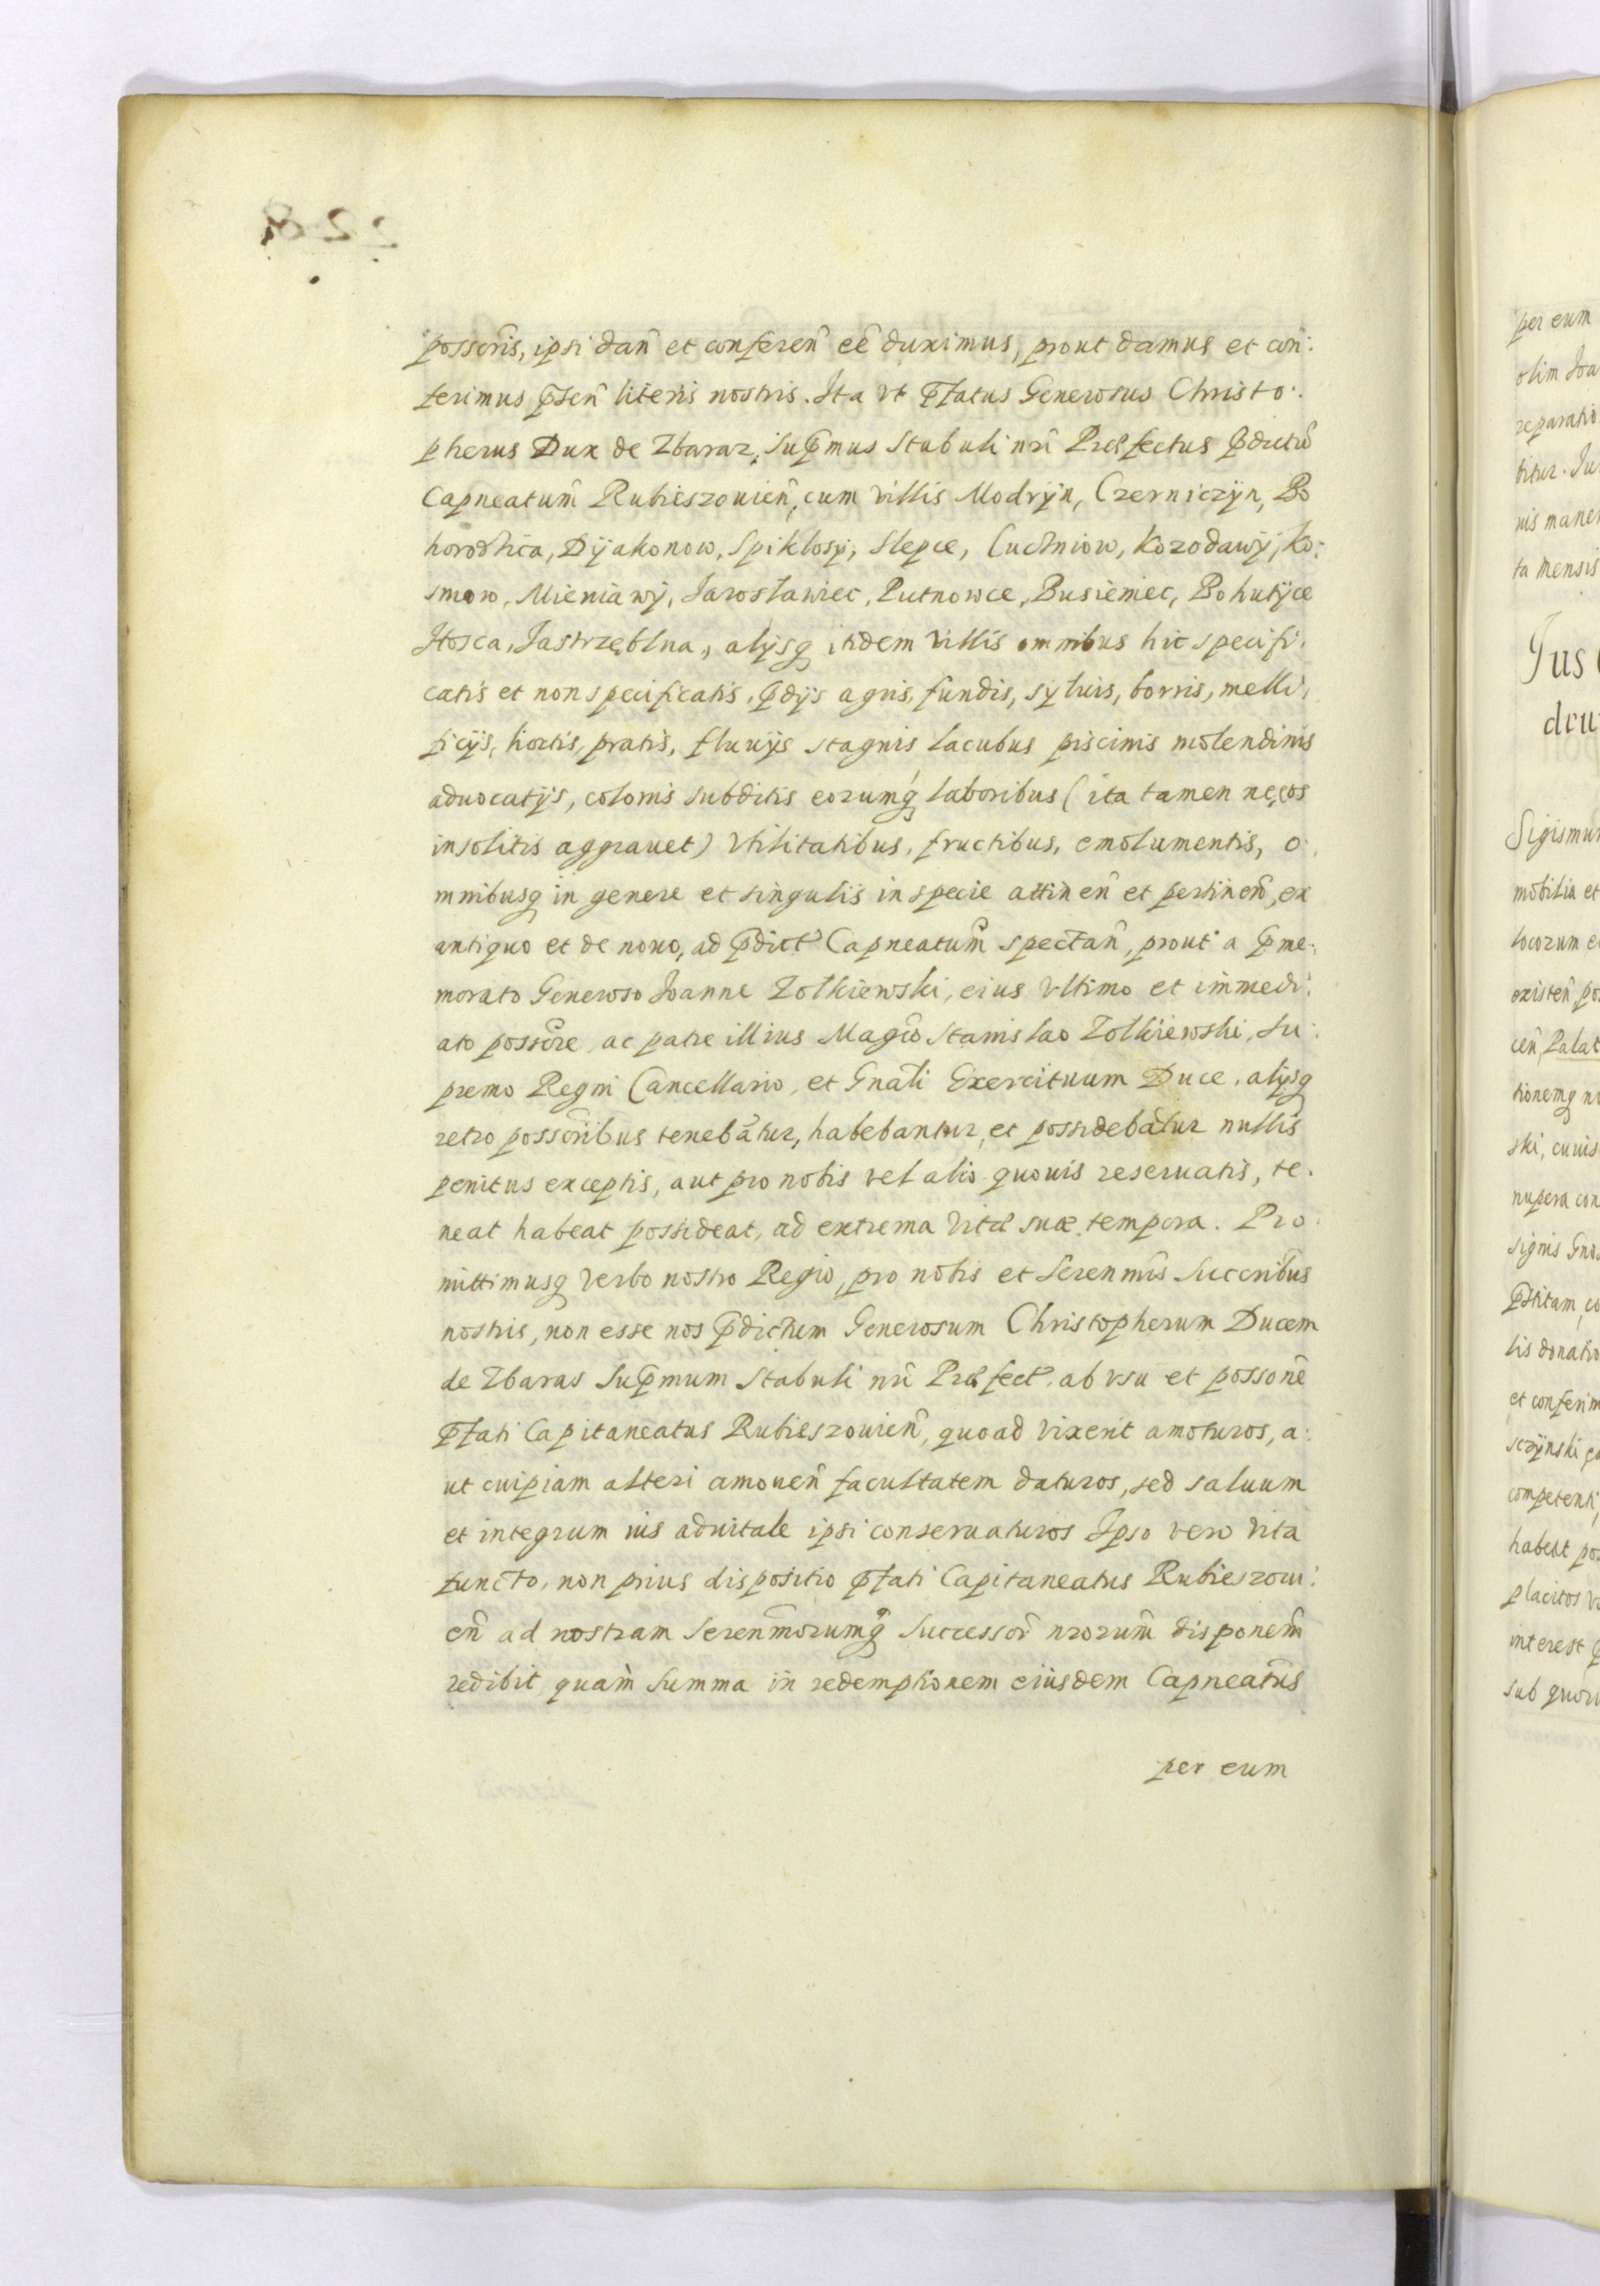 possoris, ipsi dan̄ et conferen̄ eē duximus, prout damus et con:
ferimus p̄sen̄ literis nostris. Ita vt p̄fatus Generosus Christo:
pherus Dux de Zbaraz, sup̄mus Stabuli nr̄i Præfectus p̄dictū
Capneatum̄ Rubieszouien̄, cum villis Modryn, Czerniczyn, Bo
horodica, Dyakonow, Spiklosy, Slepce, Kozodawy, Ko:
smow, Mieniawy, Jarosławiec, Putnowce, Busieniec, Bohutyce
Hosca, Jastrzęblna, alysq itidem villis omnibus hic specifi.
catis et non specificatis, p̄dys agris, fundis, syluis, borris, melli,
ficijs, hortis, pratis, fluuijs stagnis lacubus piscinis molendinis
aduocatijs, colonis subditis eorumq laboribus (ita tamen ne eos
insolitis aggrauet) vtilitatibus, fructibus, emolumentis, o:
mnibusq in genere et singulis in specie attinen̄ et pertinen̄, ex
antiquo et de nouo, ad p̄dict Capneatum̄ spectan̄, prout a p̄me:
morato Generoso Joanne Zolkiewski, eius vltimo et immedi:
ato possōre, ac patre illius Magco Stanislao Zolkiewski, Su:
premo Regni Cancellario, et Gnāli Exercituum Duce, alysq
retro possōribus tenebātur, habebantur, et possidebātur nullis
penitus exceptis, aut pro nobis vel alio quouis reseruatis, te.
neat habeat possideat, ad extrema vitæ suæ tempora. Pro:
mittimusq verbo nostro Regio, pro nobis et Serenm̄is Succribus
nostris, non esse nos p̄dictum Generosum Christopherum Ducem
de Zbaras Sup̄mum Stabuli nr̄i Præfect. ab vsu et possonē
p̄fati Capitaneatus Rubieszouien̄, quoad vixerit amoturos, a:
ut cuipiam alteri amouen̄ facultatem daturos, sed saluum
et integrum ius aduitale ipsi conseruaturos Ipso vero vita
functo, non prius dispositio p̄fati Capitaneatus Rubieszoui:
en̄ ad nostram Serenm̄orumq Successor̄ nrorum̄ disponem̄
redibit, quàm Summa in redemptionem eiusdem Capneatus
per eum
per eum
olim Joa
reparatio
ta mensis
Jus
Sigismun
mobilia et
locorum e
existen̄ po
cen̄, Palat
tionemq n
ski, cuius
nupera con
signis
lis donatio
et conferim
competenti,
habeat po
placitos v
interest
sub quor